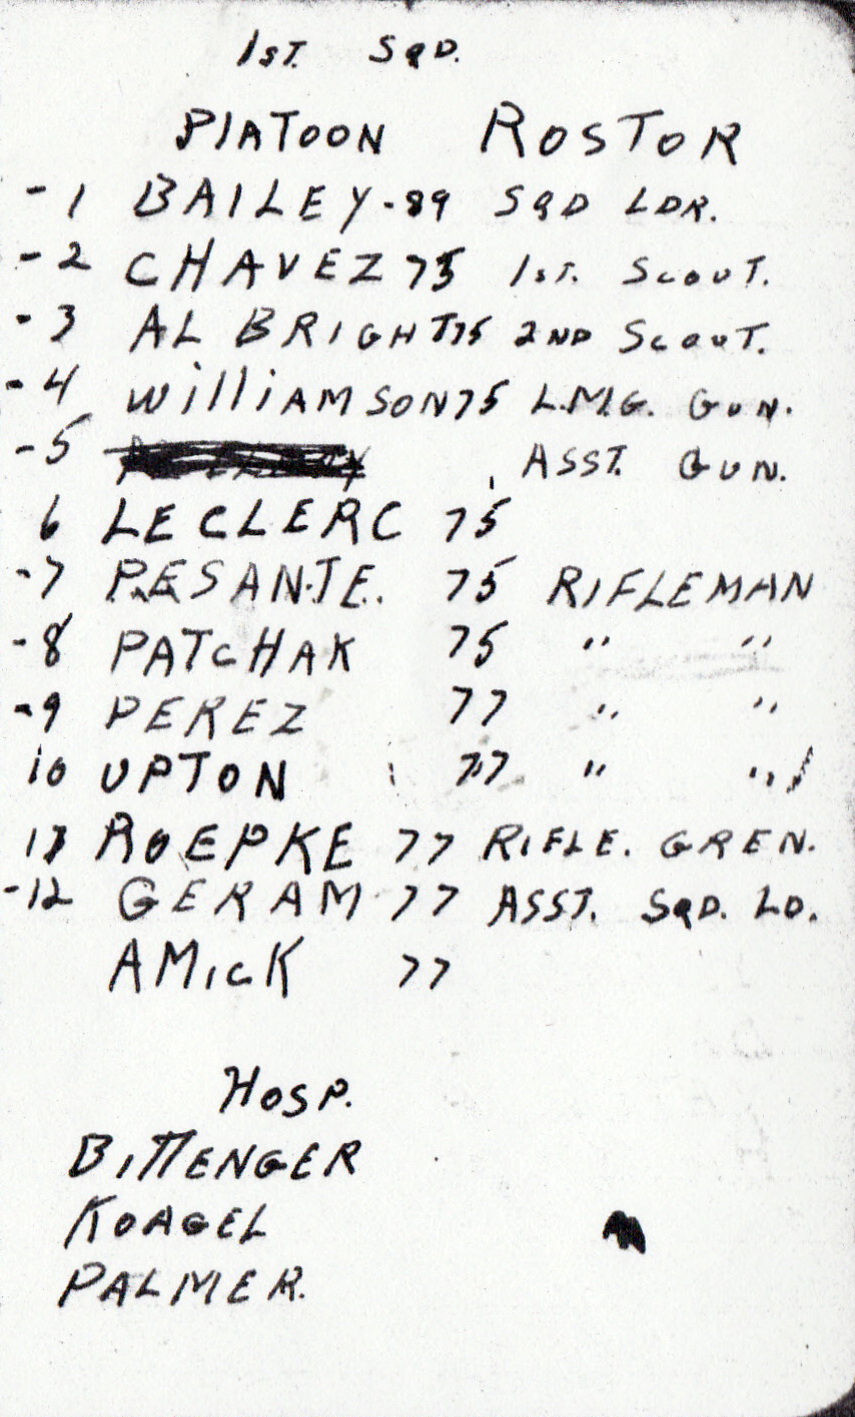 1ST. SQD.
PLATOON ROSTOR
-1 BAILEY-89 SQD LDR.
-2 CHAVEZ 75 1ST. SCOUT.
-3 AL BRIGHT 75 2ND SCOUT.
-4 WilliAMSON 75 L.M.G. GUN.
-5 ASST. GUN.
6 LECLERC 75
-7 PESANTE. 75 RIFLEMAN
-8 PATCHAK 75 " "
-9 PEREZ 77 " "
10 UPTON 77 " "
11 ROEPKE 77 RIFLE. GREN.
-12 GERAM 77 ASST. SQD. LD.
AMICK 77
HOSP.
BITTENGER
KOAGEL
PALMER.